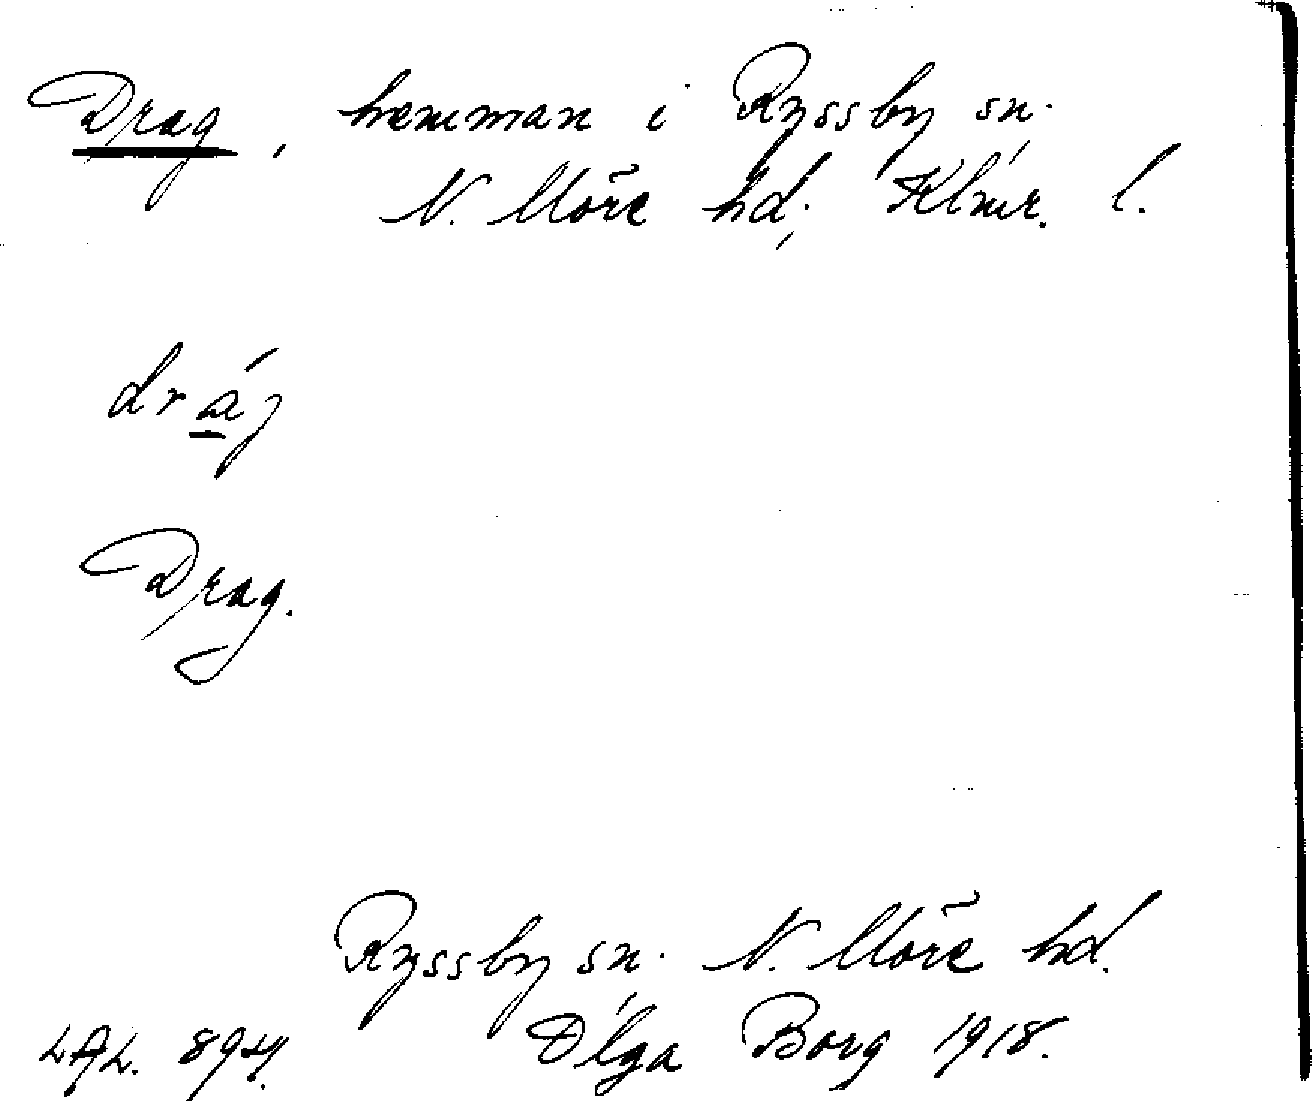 Drag, hemman i Ryssby sn.
N. Möre hd, Klmr. l.
dráj
Drag.
Ryssby sn. N. Möre hd.
LAL. 894. Olga Borg 1918.